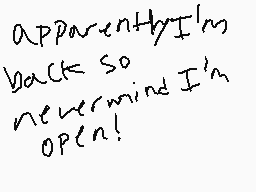 apparently I'm
back so
nevermind I'm
open!